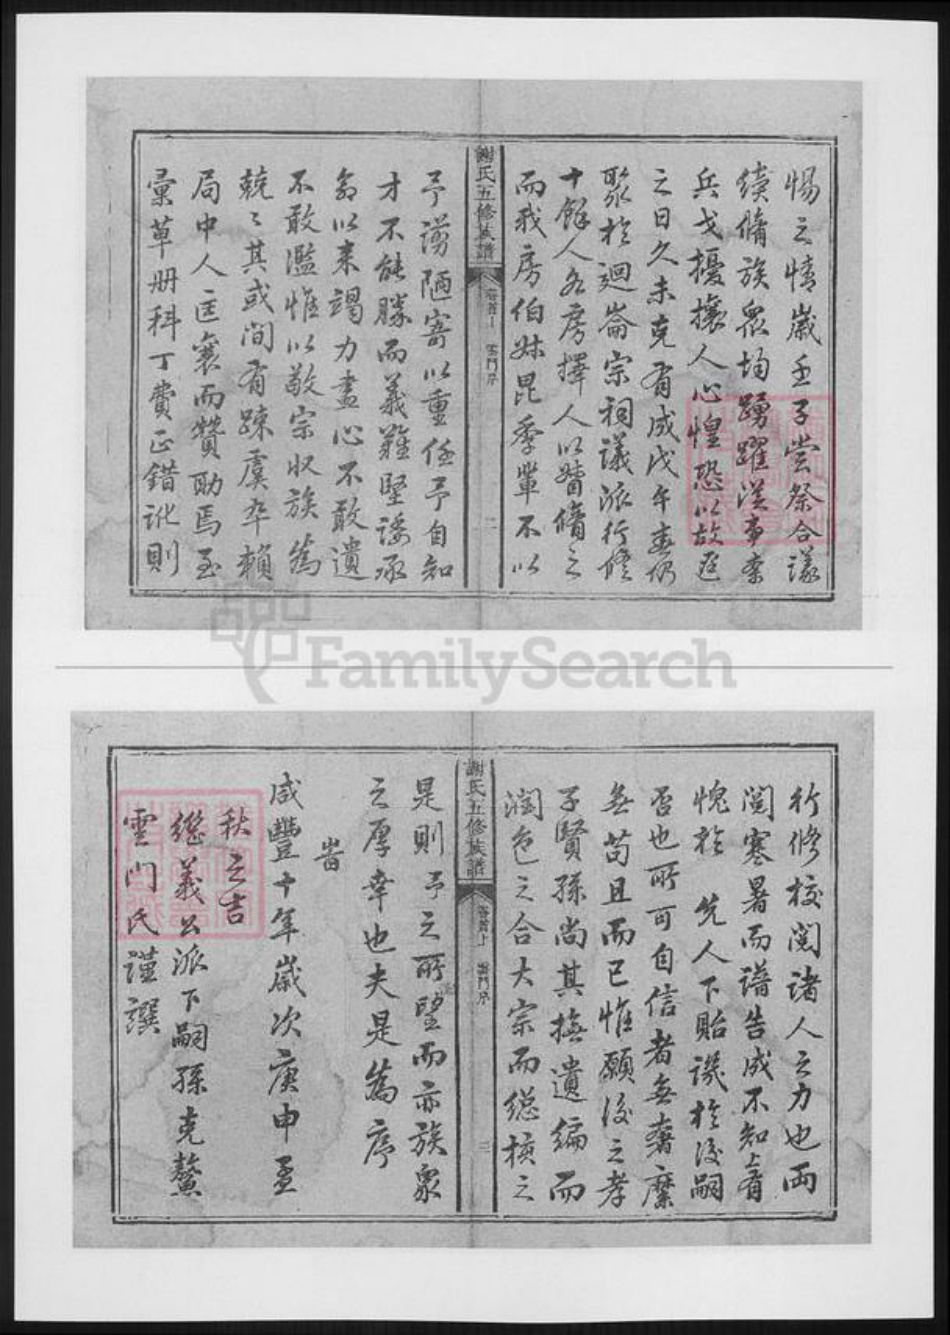 惕之情歲壬子嘗祭合議
續脩族眾均踴躍從事柰
兵戈擾攘人心惶恐以故延
之日久未克有成戊午春仍
聚於迴崙宗祠議派行修
十餘人各房擇人以襄脩之
而我房伯叔昆季輩不以
謝氏五修族譜
卷首上 雲門序 二
予謭陋寄以重任予自知
才不能勝而義難堅諉承
命以來竭力盡心不敢遺
不敢濫惟以敬宗收族為
兢〻其或間有疎虞卒賴
局中人匡襄而贊助焉至
彙草册科丁費正錯訛則
行修校閱諸人之力也兩
閱寒暑而譜告成不知上有
愧於 先人下貽譏於後嗣
否也所可自信者無奢靡
無苟且而已惟願後之孝
子賢孫尚其撫遺編而
潤色之合大宗而總核之
謝氏五修族譜
卷首上 雲門序 三
是則予之所望而亦族眾
之厚幸也夫是為序
峕
咸豐十年歲次庚申孟
秋之吉
總義公派下嗣孫克鰲
雲門氏謹譔
FamilySearch